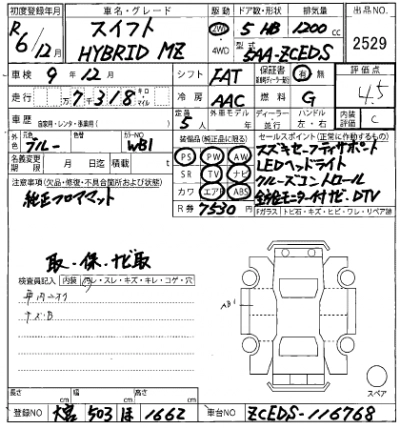 初度登録年月 車名・グレード 駆動 ドア数・形状 排気量 出品NO
R6/12月 スイフト HYBRID MZ 2WD 4WD 5 HB 1200cc 2529
型式 5AA-ZCEDS
車検 9年12月 シフト FAT 保証書 有 無 評価点 4.5
走行 7,318 キロ マイル 冷房 AAC 燃料 G
車歴 自家用・レンタ・ 定員 5人 外車モデル 年 ディーラー 並行 ハンドル 左・右 内装評価 C
外色 元色 ブルー 色替 カラーNO WB1 装備品(純正品に限る) セールスポイント(正常に作動するもの)
名義変更期限 月 日迄 積載 t PS PW AW
SR TV ナビ
カワ エアB ABS
スズキセーフティサポート
LEDヘッドライト
クルーズコントロール
全方位モニター付ナビ・DTV
注意事項(欠品・修復・不具合箇所および状態)
純正フロアマット R券 7530
Fガラス トビ石・キズ・ヒビ・ワレ・リペア跡
取・保・ナビ取
検査員記入 内装 ヨゴレ・スレ・キズ・キレ・コゲ・穴
車内ヨゴレ
キズ・B
AB1
スペア
長さ cm 幅 cm 高さ cm
登録NO 大宮 503 ほ 1662 車台NO ZCEDS-116768